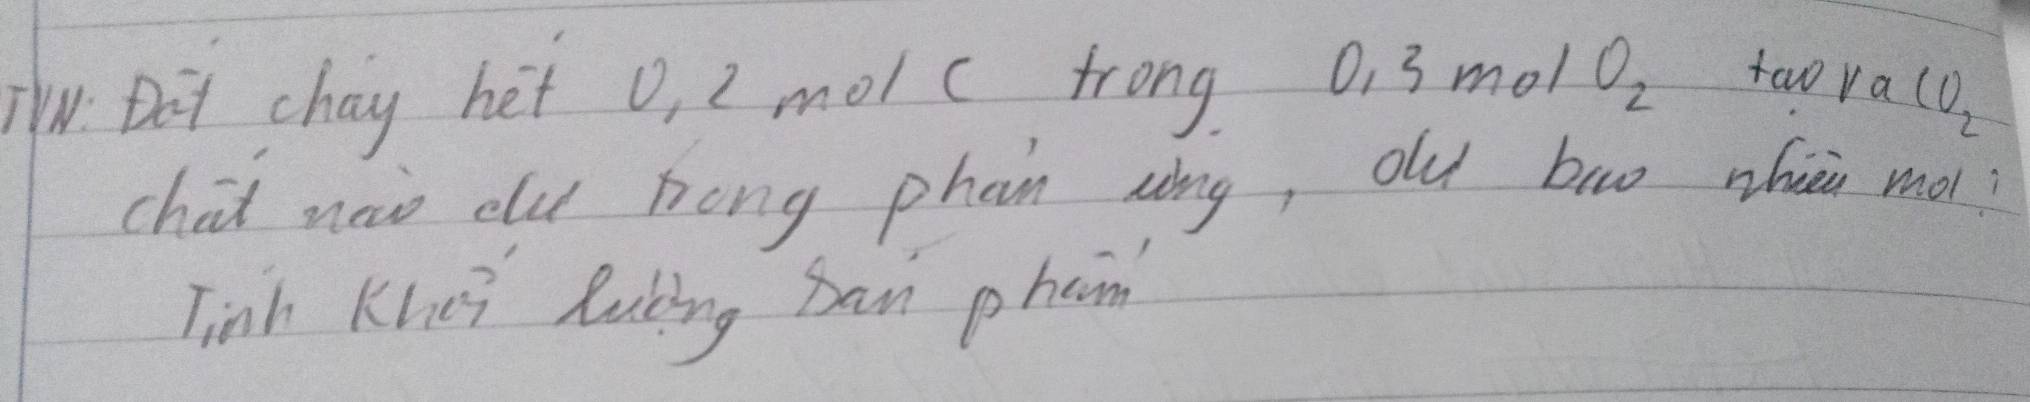 TVN: Đốt cháy hết 0,2 mol C trong 0,3 mol O₂ tạo ra CO₂
chất nào dư trong phản ứng, dư bao nhiêu mol?
Tính Khối lượng sản phẩm